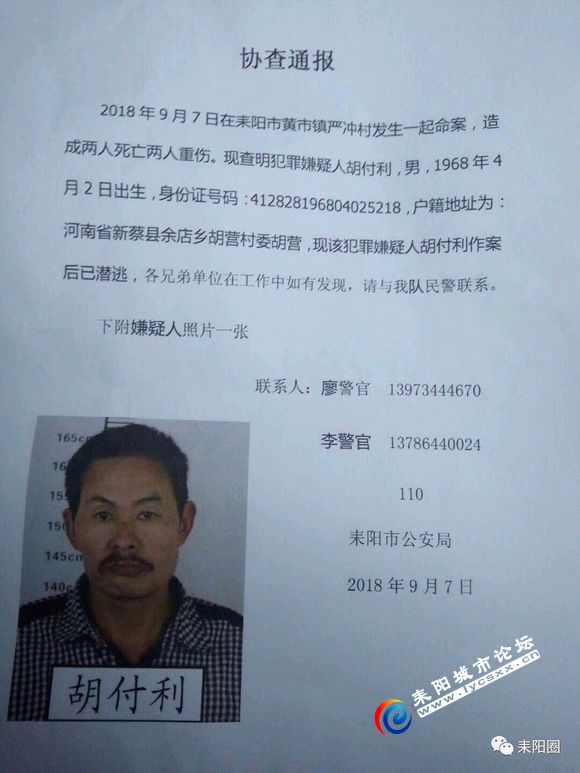 协查通报
2018年9月7日在耒阳市黄市镇严冲村发生一起命案，造
成两人死亡两人重伤。现查明犯罪嫌疑人胡付利，男，1968年4
月2日出生，身份证号码：412828196804025218，户籍地址为：
河南省新蔡县余店乡胡营村委胡营，现该犯罪嫌疑人胡付利作案
后已潜逃，各兄弟单位在工作中如有发现，请与我队民警联系。
下附嫌疑人照片一张
联系人：廖警官 13973444670
李警官 13786440024
110
耒阳市公安局
2018年9月7日
165cm
160
155
150
145cm
140c
胡付利
耒阳城市论坛
www.lycsxx.cn
耒阳圈